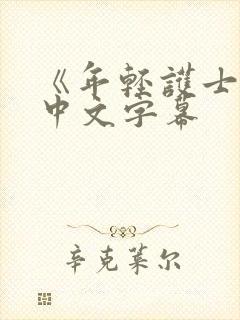 《年轻護士
中文字幕
辛克莱尔